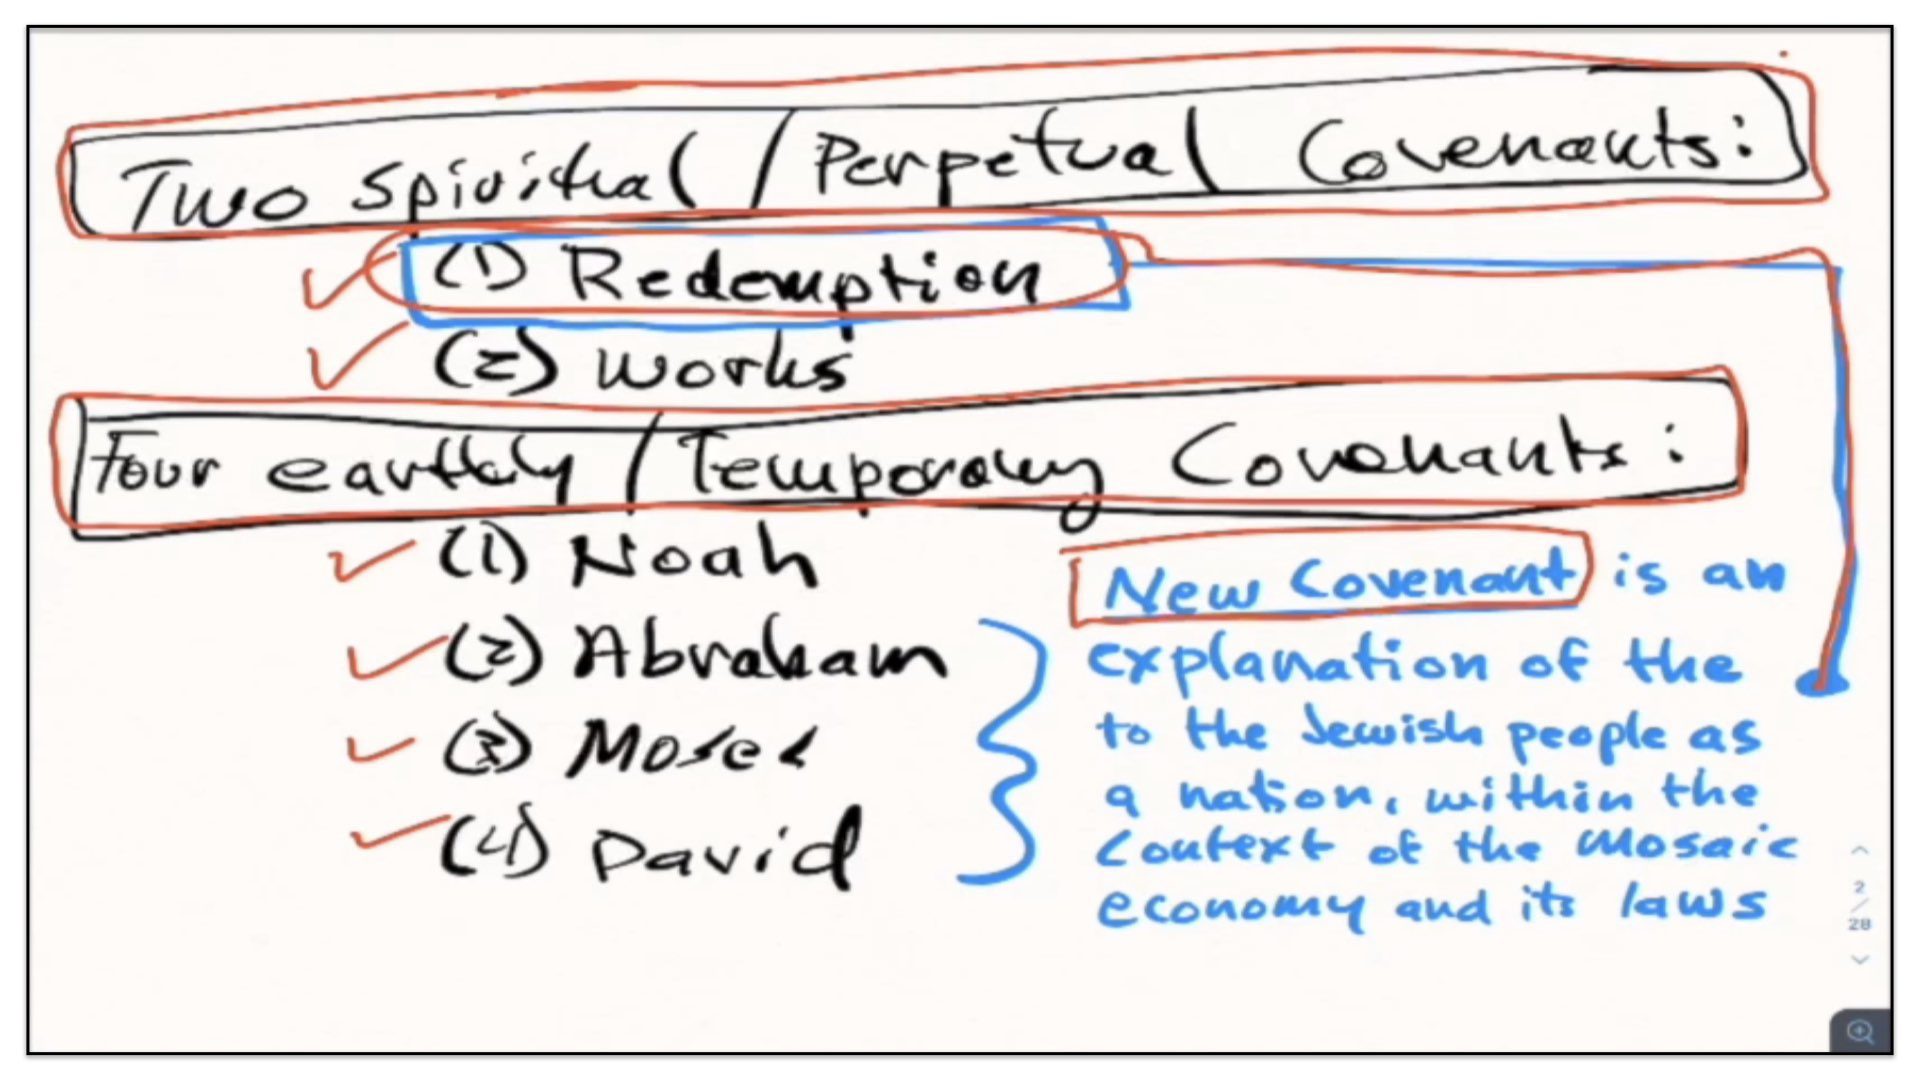 Two Spiritual / Perpetual Covenants:
(1) Redemption
(2) Works
Four earthly / Temporary Covenants:
(1) Noah
(2) Abraham
(3) Moses
(4) David
New Covenant is an
explanation of the
to the Jewish people as
a nation, within the
context of the Mosaic
economy and its laws
2
/
28